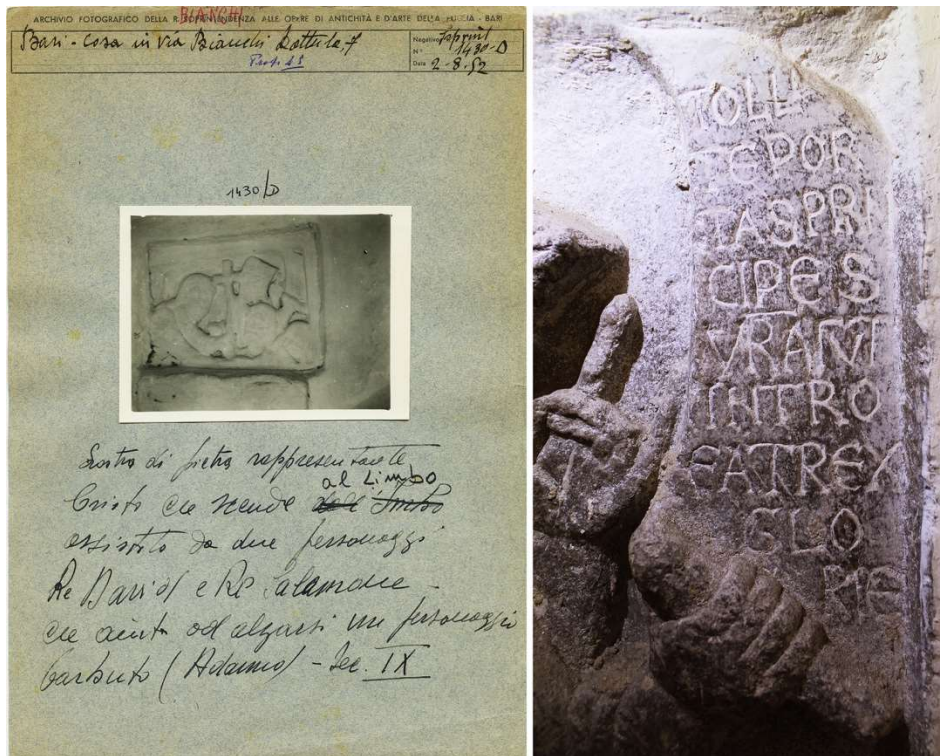 BIANCHI
ARCHIVIO FOTOGRAFICO DELLA R. SOPRINTENDENZA ALLE OPERE DI ANTICHITÀ E D'ARTE DELLA PUGLIA - BARI
Bari - Casa in via Bianchi Dottula, 7
Negativo
N° 1430-D
Data 2-8-52
1430/D
Lastra di pietra rappresentante
Cristo che scende al Limbo
assistito da due personaggi
Re David e Re Salomone -
che aiuta ad alzarsi un personaggio
barbuto (Adamo) - Sec. IX
TOLLI
TEPOR
TASPRI
CIPES
VRANT
INTRO
EATREX
GLO
RIE